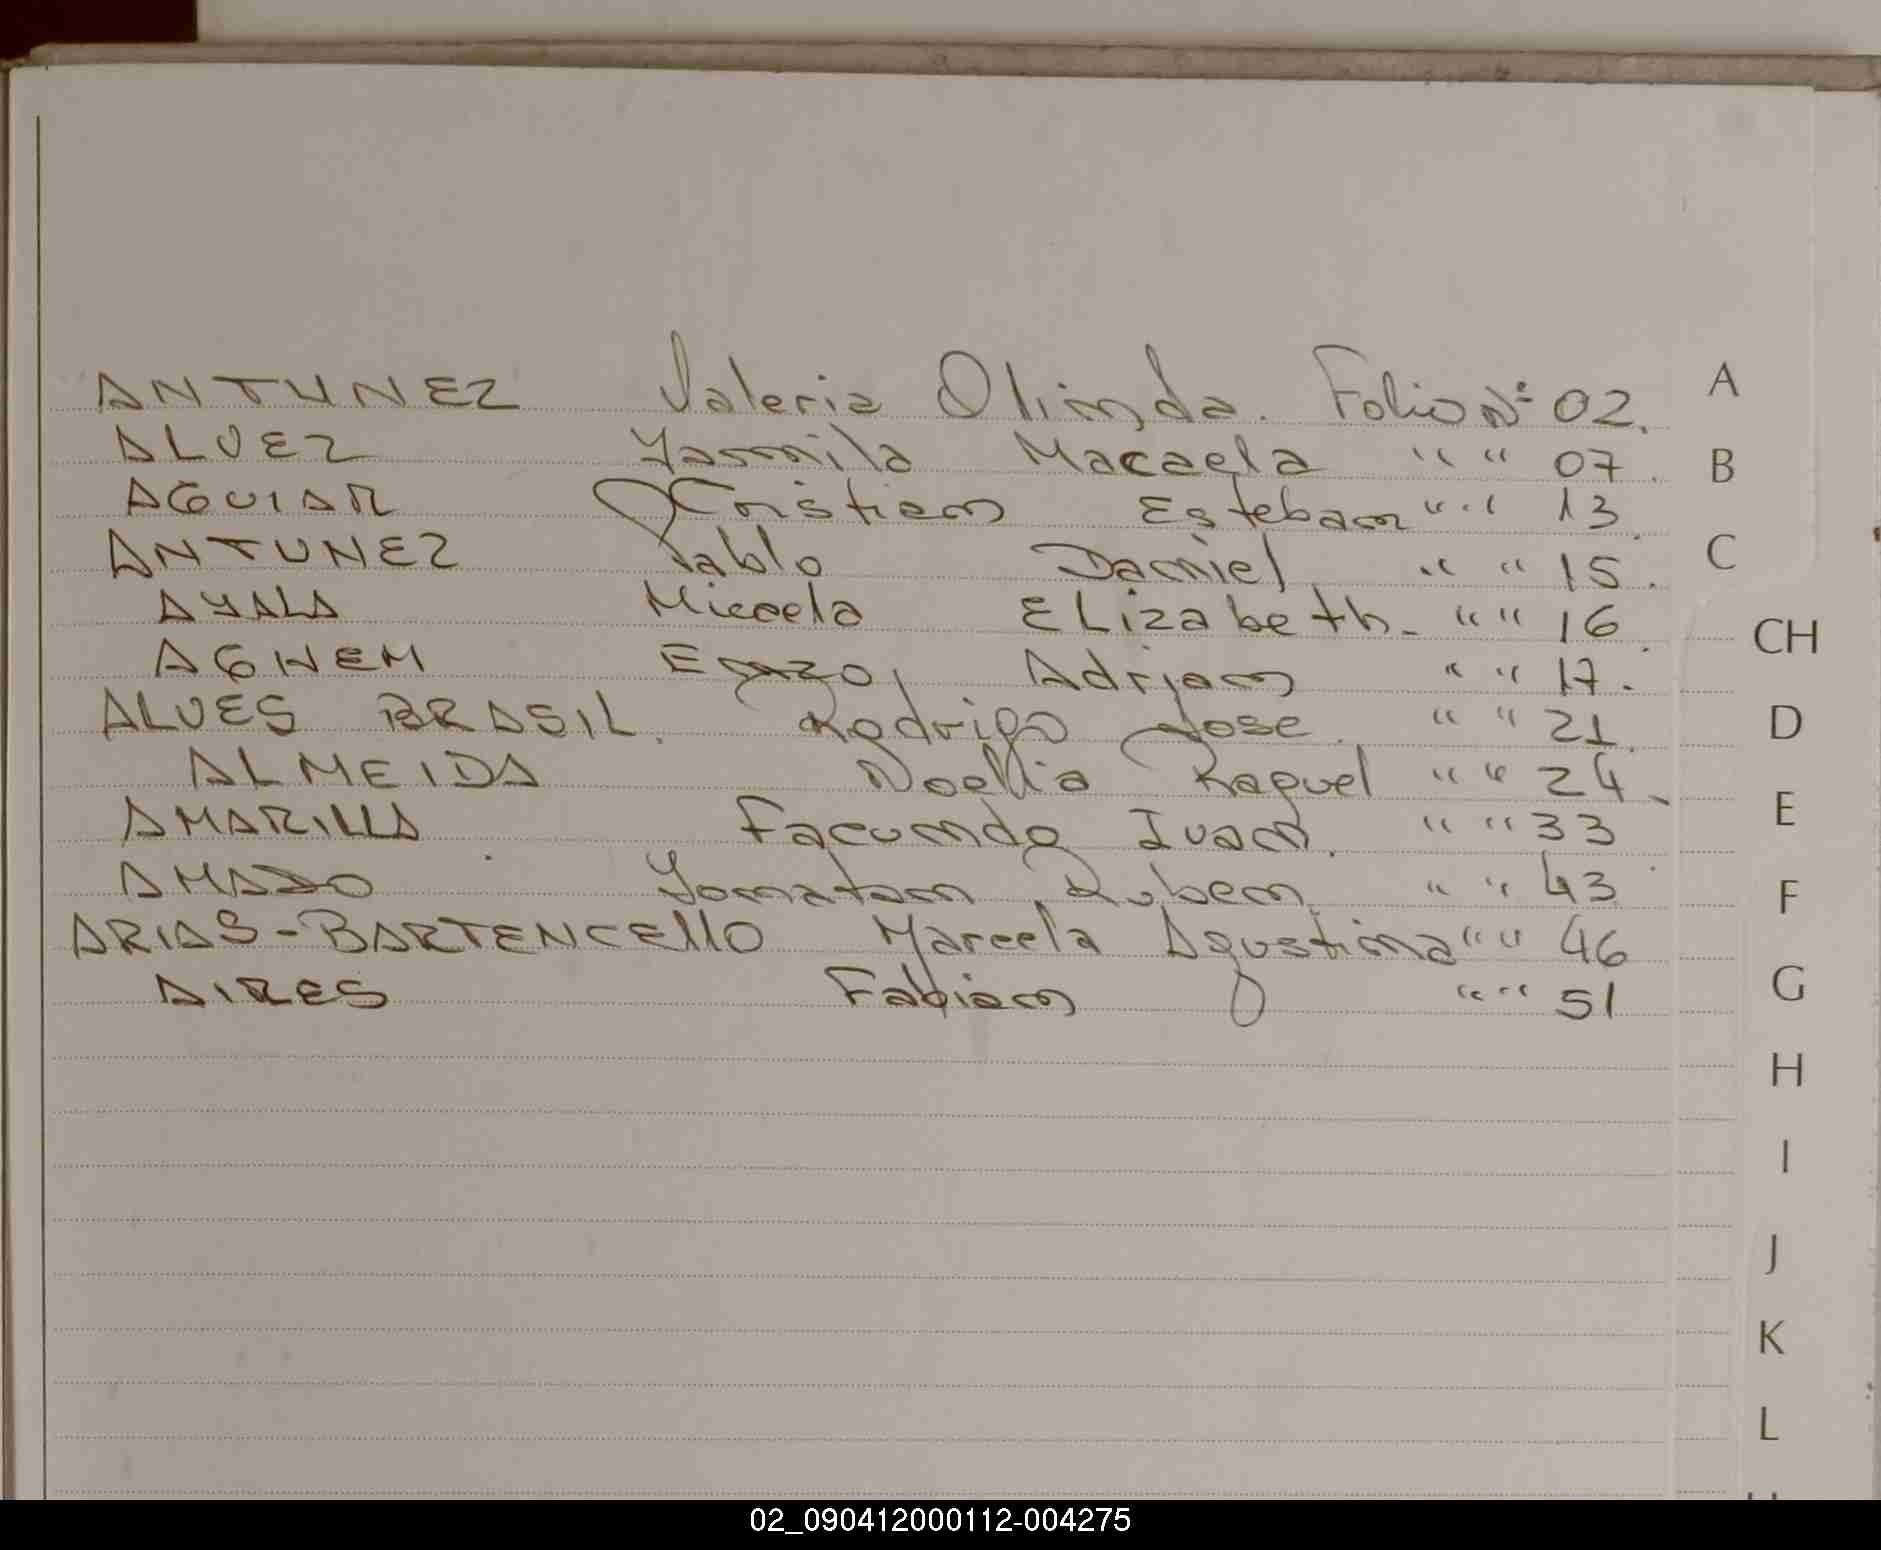 ANTUNEZ Valeria Olinda. Folio Nº 02.
ALVEZ Yasmila Macaela " " 07.
AGUIAR Cristian Esteban " " 13
ANTUNEZ Pablo Daniel " " 15.
AYALA Micaela ELizabeth. " " 16.
AGNEM Enzo Adrian " " 17.
ALVES BRASIL. Rodrigo Jose. " " 21.
ALMEIDA Noelia Raquel " " 24.
AMARILLA Facundo Ivan. " " 33
AMADO Yonatan Ruben. " " 43
ARIAS-BARTENCEllO Marcela Agustina " " 46
AIRES Fabian " " 51
A
B
C
CH
D
E
F
G
H
I
J
K
L
02_090412000112-004275